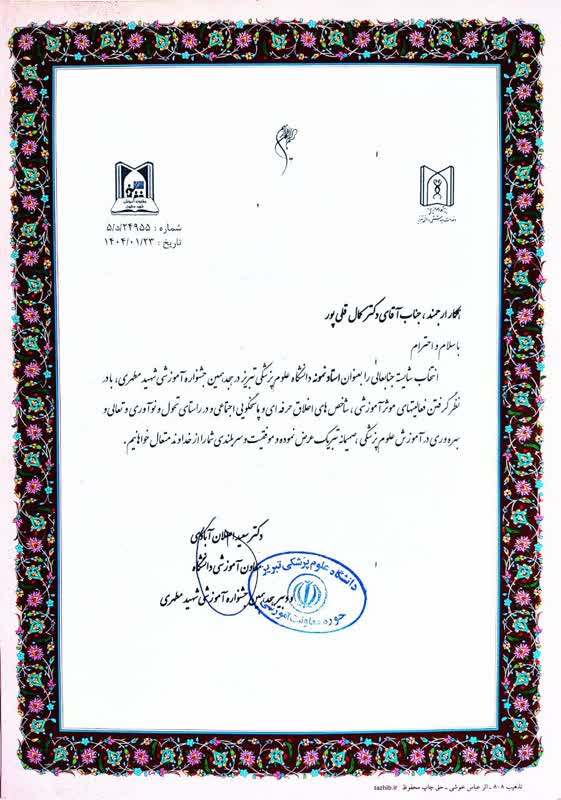 شماره : ۵/د/۲۴۹۵۵
تاریخ : ۱۴۰۴/۰۱/۲۳
همکار ارجمند ، جناب آقای دکتر کمال قلی پور
با سلام و احترام
انتخاب شایسته جنابعالی را بعنوان استاد نمونه دانشگاه علوم پزشکی تبریز در هجدهمین جشنواره آموزشی شهید مطهری، با در
نظر گرفتن فعالیتهای موثر آموزشی ، شاخص های اخلاق حرفه ای و پاسخگویی اجتماعی و در راستای تحول و نوآوری و تعالی و
بهره وری در آموزش علوم پزشکی ، صمیمانه تبریک عرض نموده و موفقیت و سربلندی شما را از خداوند متعال خواهانیم .
دکتر سعید اصلان آبادی
معاون آموزشی دانشگاه
و دبیر هجدهمین جشنواره آموزشی شهید مطهری
دانشگاه علوم پزشکی تبریز
حوزه معاونت آموزشی
تذهیب ۸۰۸ ـ اثر عباس خوشی ـ حق چاپ محفوظ tazhib.ir